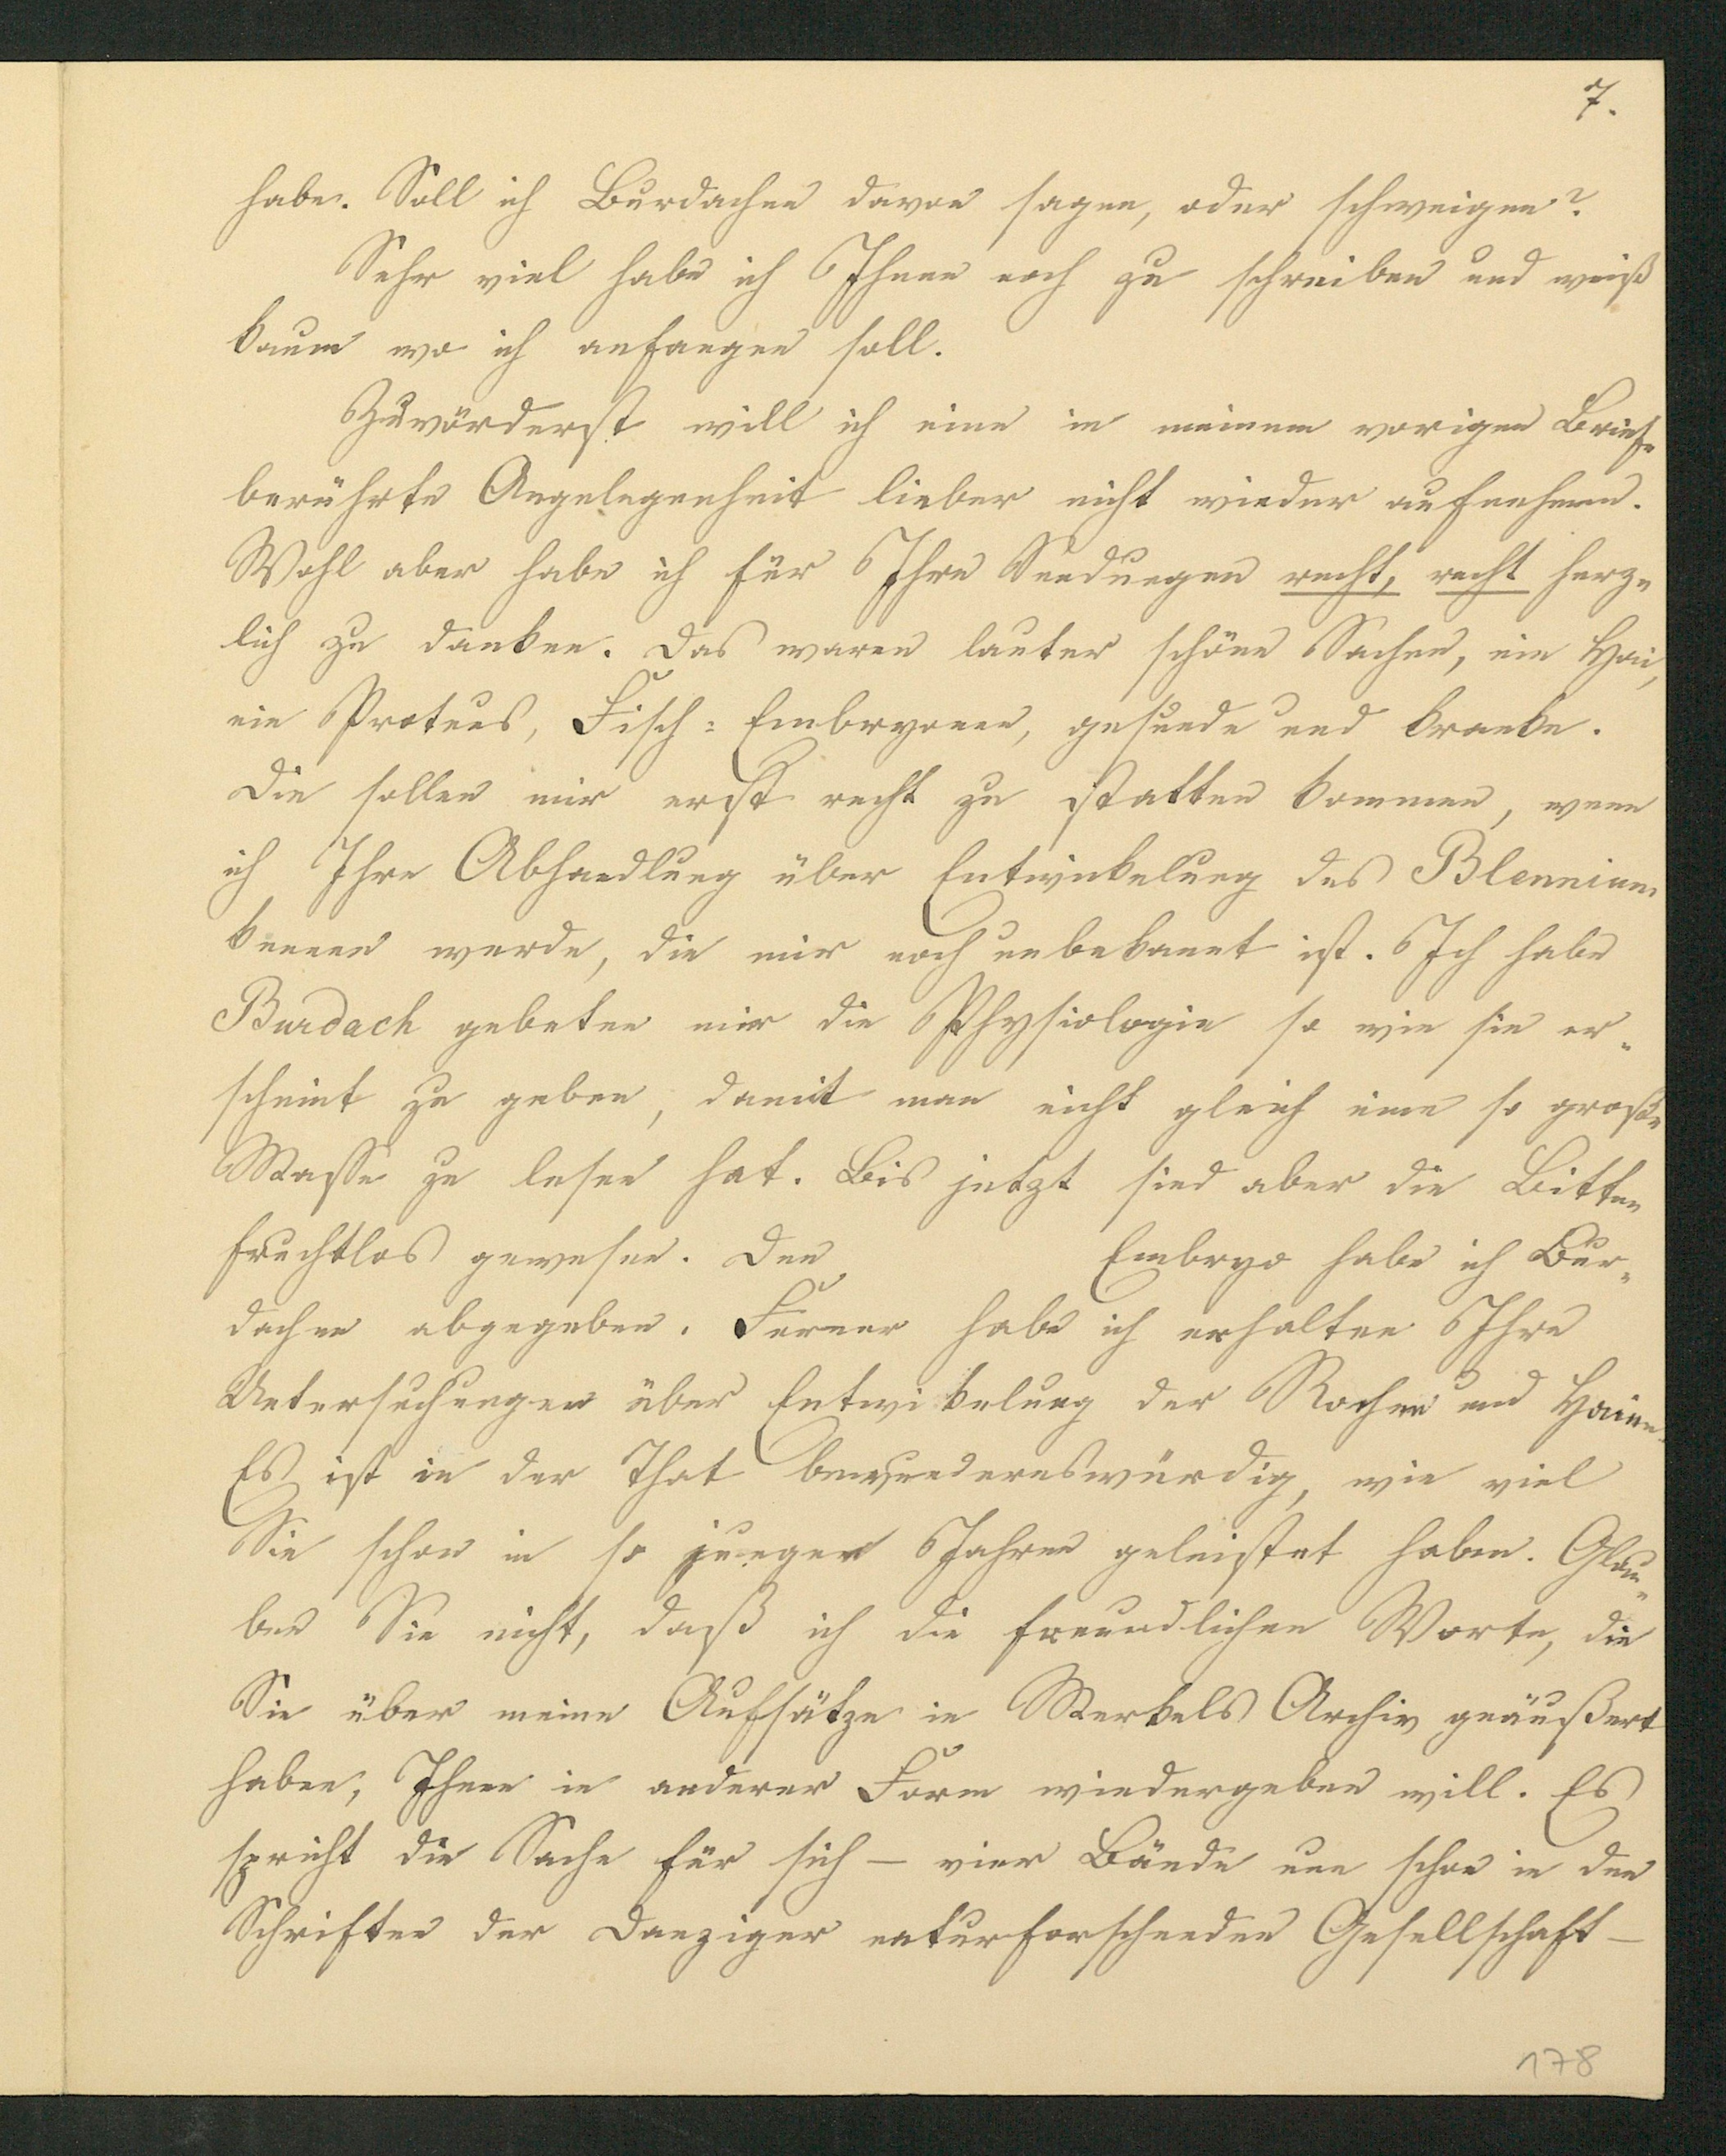 7.
habe. Soll ich Burdachen davon sagen, oder schweigen?
Sehr viel habe ich Ihnen noch zu schreiben und weiß
kaum wo ich anfangen soll.
Zuvörderst will ich eine in meinem vorigen Briefe
berührte Angelegenheit lieber nicht wieder aufnehmen.
Wohl aber habe ich für Ihre Sendungen recht, recht herz-
lich zu danken. Das waren lauter schöne Sachen, ein Hai,
ein Proteus, Fisch-Embryonen, gesunde und kranke.
Die sollen mir erst recht zu statten kommen, wenn
ich Ihre Abhandlung über Entwickelung des Blennium
kennen werde, die mir noch unbekannt ist. Ich habe
Burdach gebeten mir die Physiologie so wie sie er-
scheint zu geben, damit man nicht gleich eine so große
Masse zu lesen hat. Bis jetzt sind aber die Bitten
fruchtlos gewesen. Den Embryo habe ich Bur-
dachen abgegeben. Ferner habe ich erhalten Ihre
Untersuchungen über Entwikelung der Rochen und Haien.
Es ist in der That bewundernswürdig, wie viel
Sie schon in so jungen Jahren geleistet haben. Glau-
ben Sie nicht, daß ich die freundlichen Worte, die
Sie über meine Aufsätze in Merkels Archiv geäußert
haben, Ihnen in anderer Form wiedergeben will. Es
spricht die Sache für sich – vier Bände nun schon in den
Schriften der Danziger naturforschenden Gesellschaft –
178